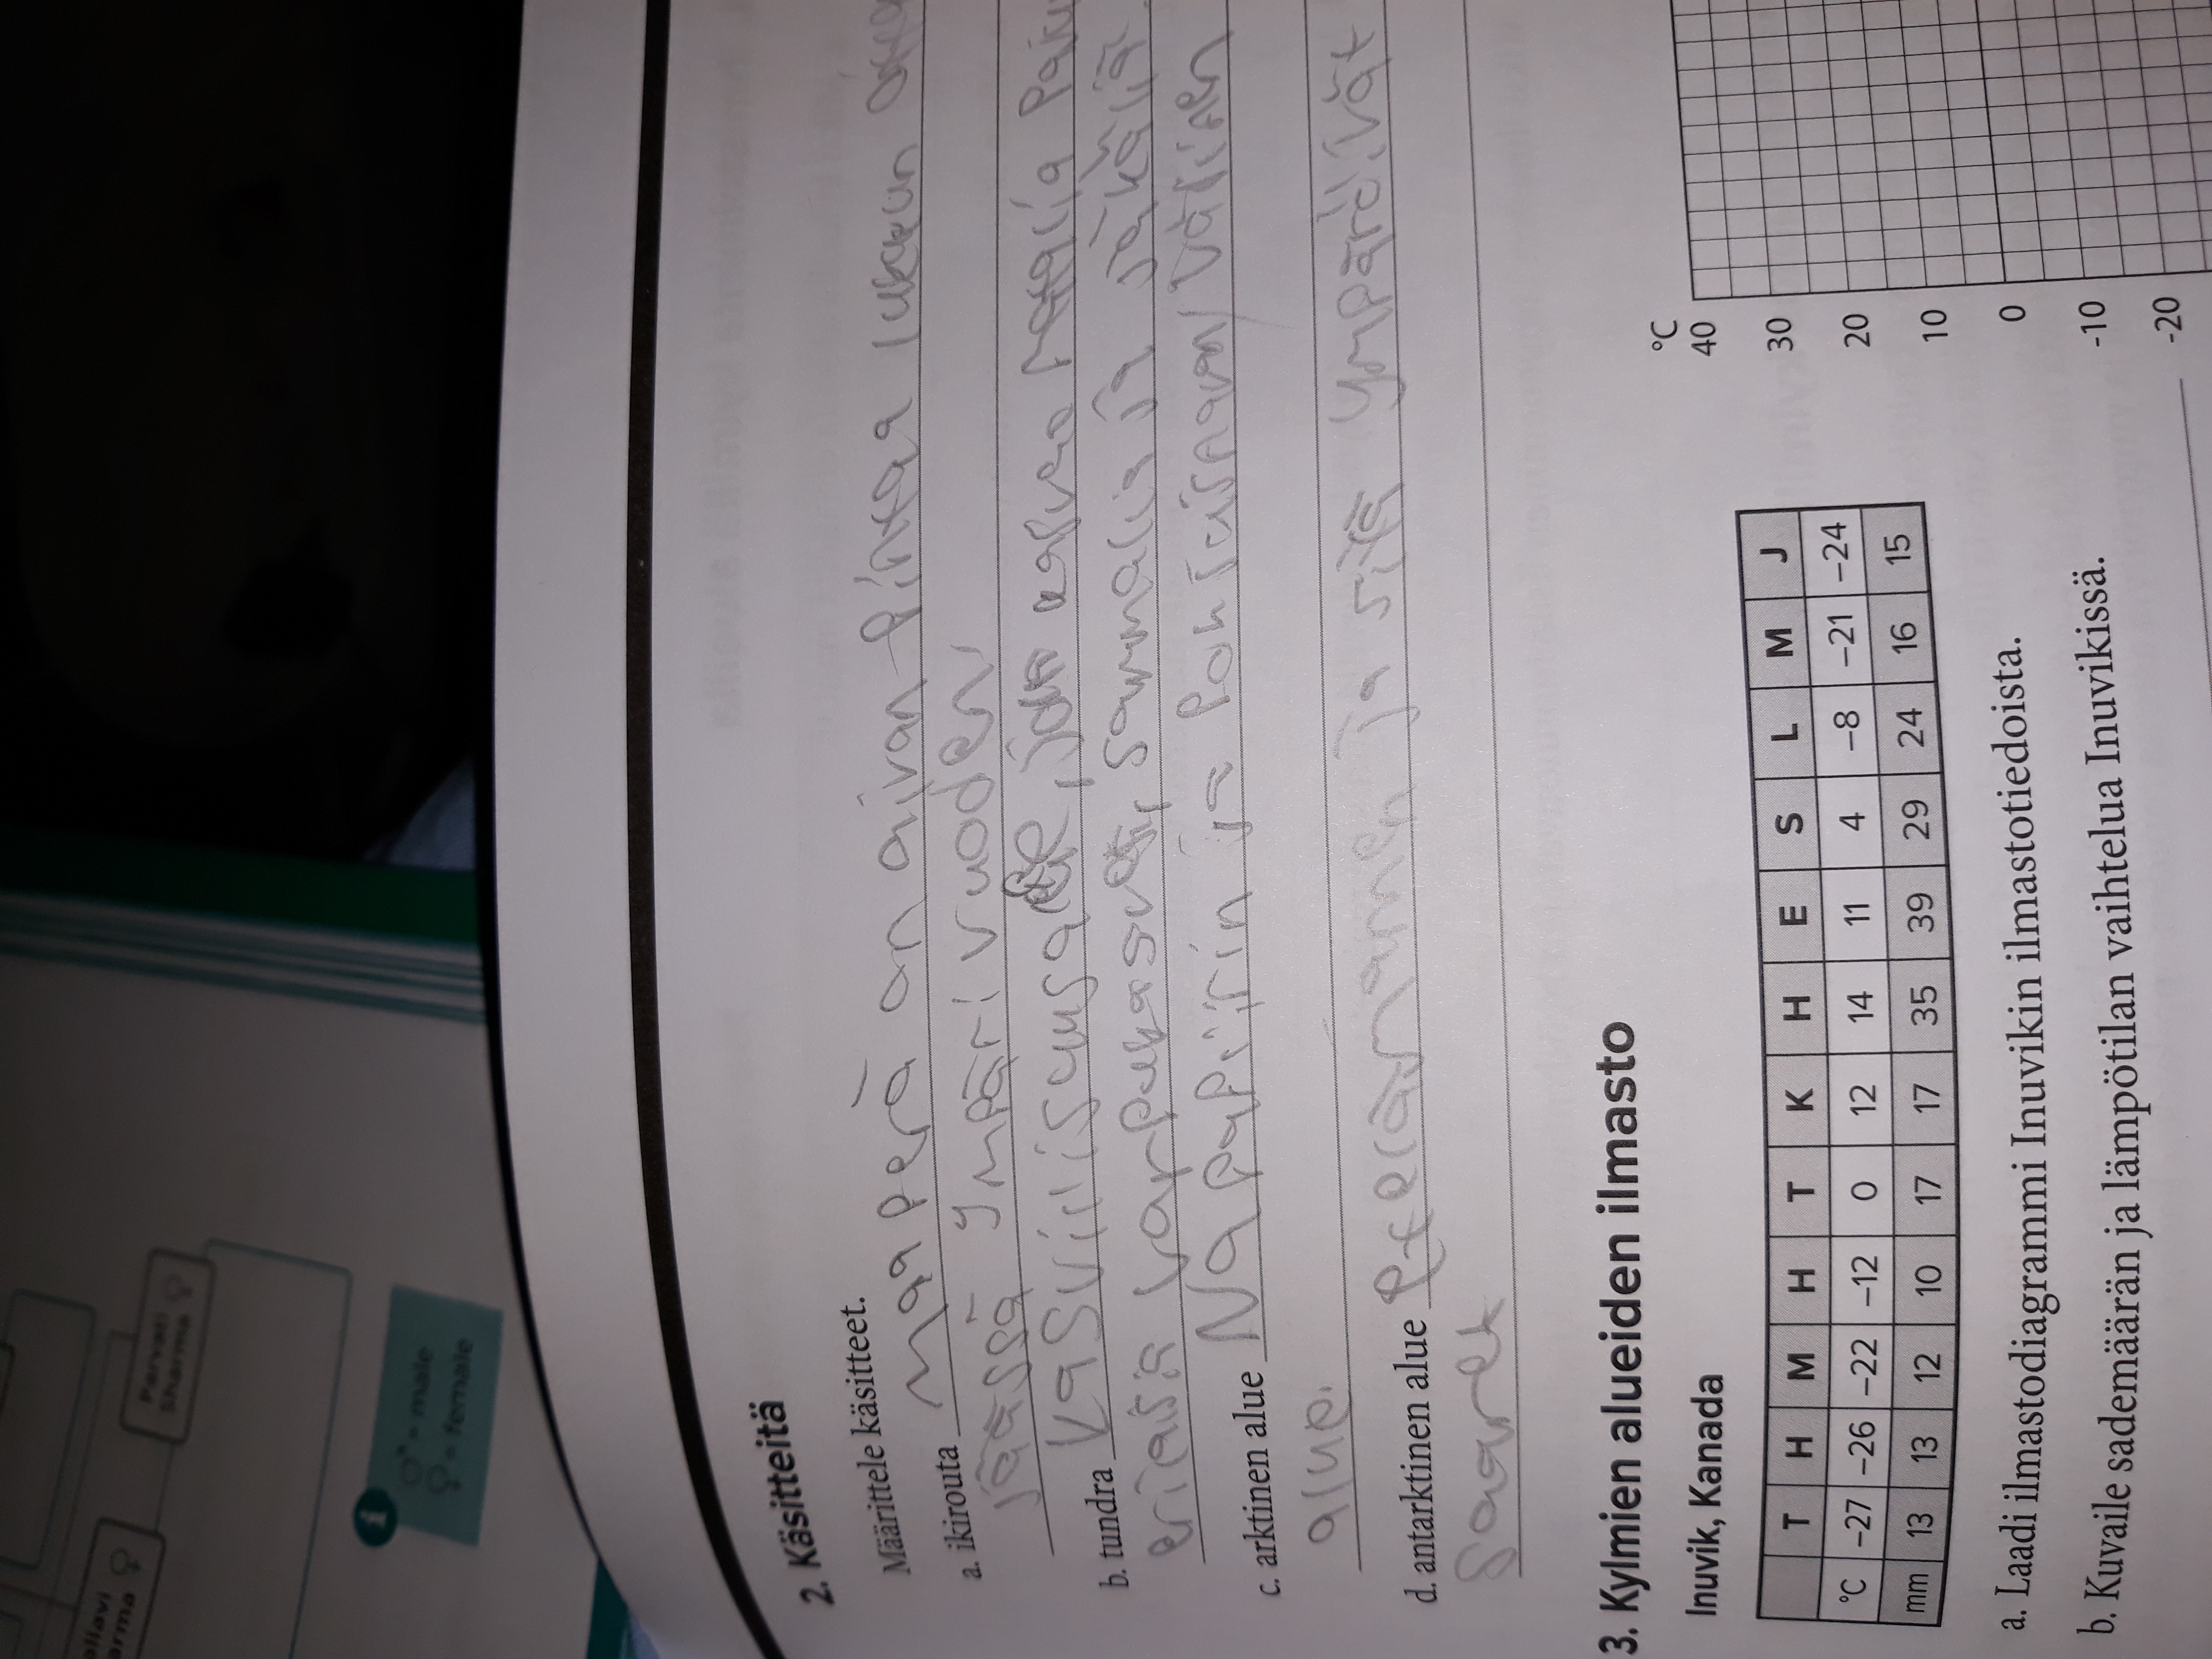 Parvati
Sharma
♂ = male
♀ = female
i
2. Käsitteitä
Määrittele käsitteet.
a. ikirouta maaperä on aivan pintaa lukuun
jäässä ympäri vuoden
b. tundra kasvillisuusalue, jolla kasvaa
erilaisia varpukasveja, sammalia ja jäkäliä.
c. arktinen alue Napapiirin ja Pohjoisnavan välinen
alue.
d. antarktinen alue Etelämanner ja sitä ympäröivät
saaret
3. Kylmien alueiden ilmasto
Inuvik, Kanada
T H M H T K H E S L M J
°C -27 -26 -22 -12 0 12 14 11 4 -8 -21 -24
mm 13 13 12 10 17 17 35 39 29 24 16 15
°C
40
30
20
10
0
-10
-20
a. Laadi ilmastodiagrammi Inuvikin ilmastotiedoista.
b. Kuvaile sademäärän ja lämpötilan vaihtelua Inuvikissä.